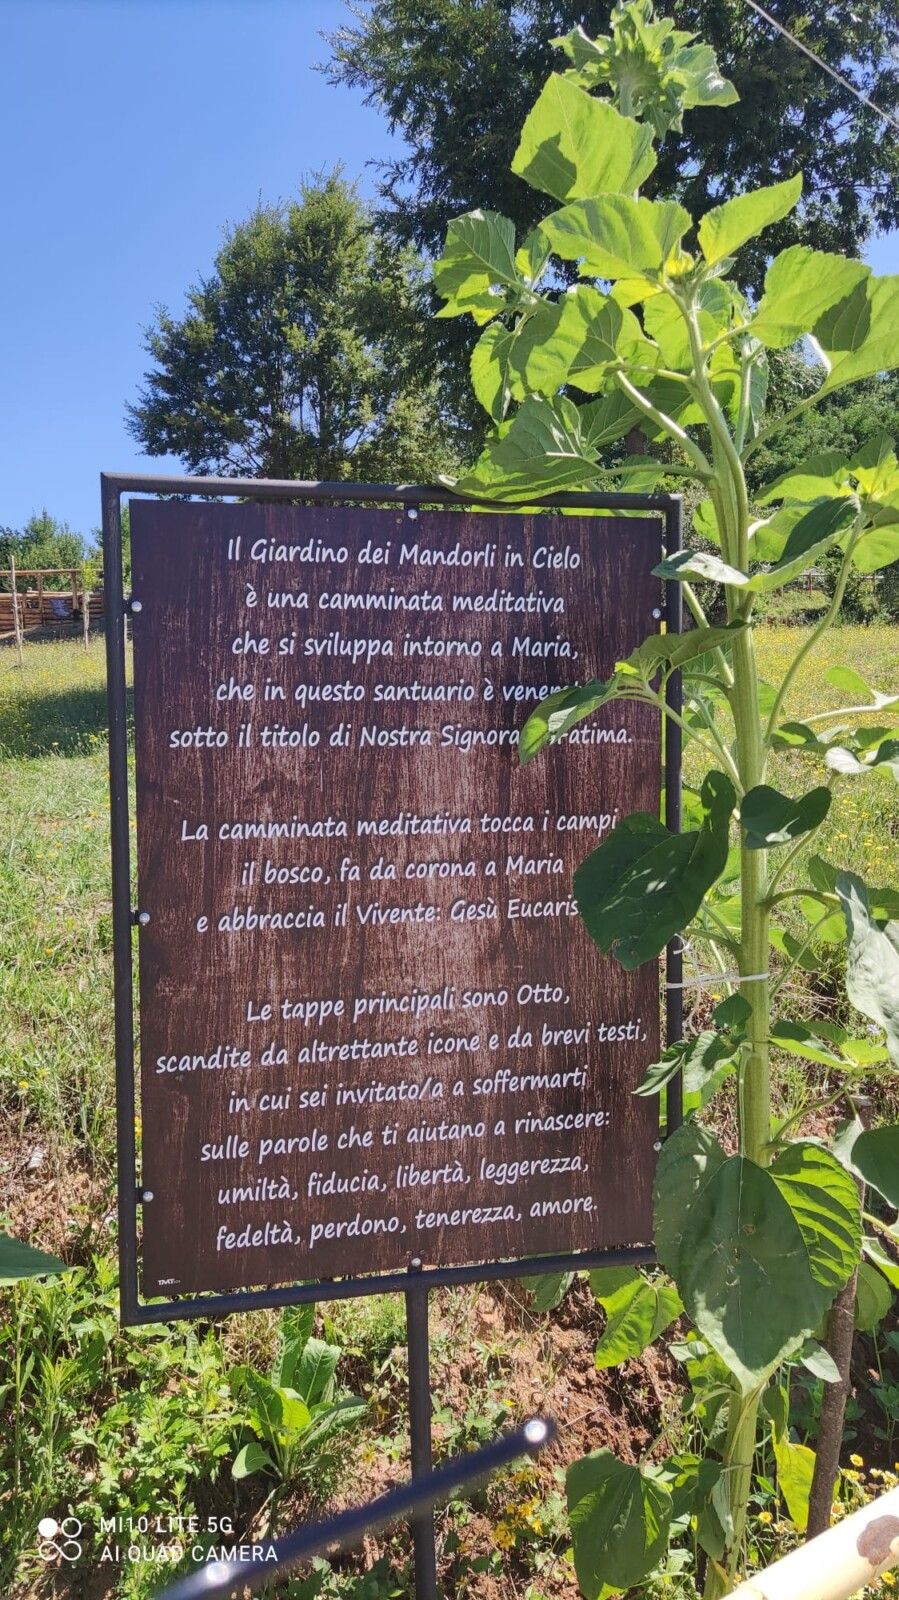 Il Giardino dei Mandorli in Cielo
è una camminata meditativa
che si sviluppa intorno a Maria,
che in questo santuario è
sotto il titolo di Nostra Signora
La camminata meditativa tocca i campi
il bosco, fa da corona a Maria
e abbraccia il Vivente: Gesù
Le tappe principali sono Otto,
scandite da altrettante icone e da brevi testi,
in cui sei invitato/a a soffermarti
sulle parole che ti aiutano a rinascere:
umiltà, fiducia, libertà, leggerezza,
fedeltà, perdono, tenerezza, amore.
MI 10 LITE 5G
AI QUAD CAMERA